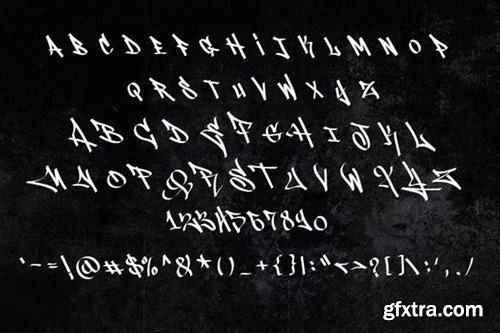 A B C D E F G H I J K L M N O P
Q R S T U V W X Y Z
A B C D E F G H I J K L
M N O P Q R S T U V W X Y Z
1234567890
`~=!@#$%^&*()_+{}|:"<>?[]\;',./
gfxtra.com